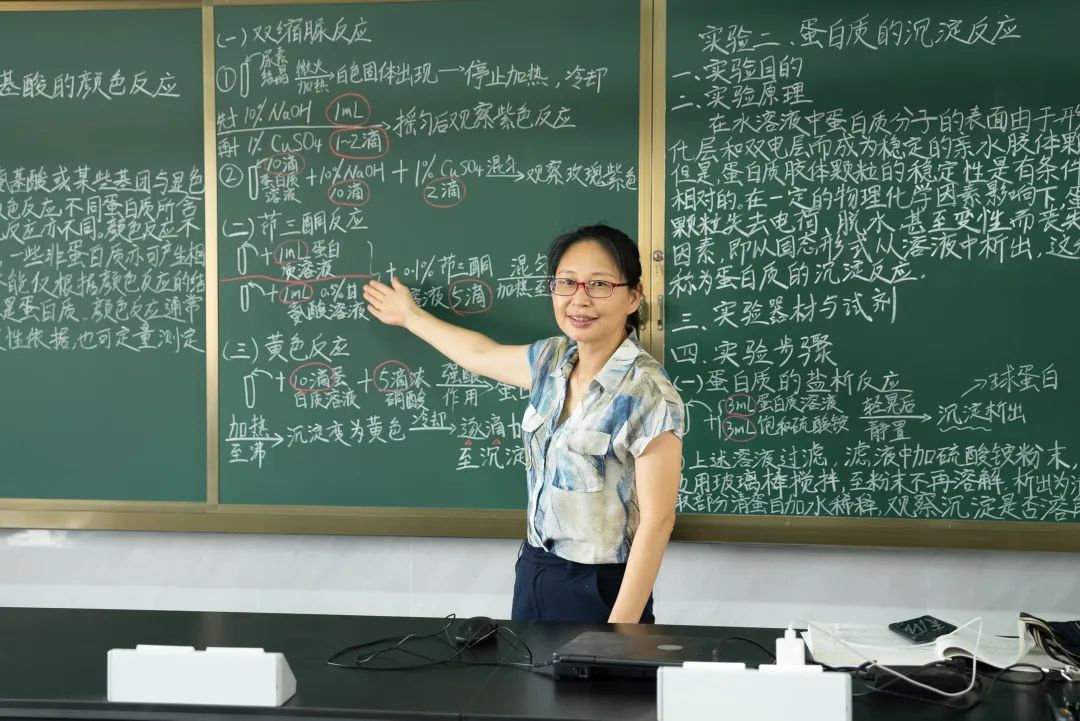 基酸的颜色反应
氨基酸或某些基团与显色
色反应,不同蛋白质所含
反应亦不同,颜色反应不
一些非蛋白质亦可产相
能仅根据颜色反应的结
是蛋白质.颜色反应通常
性依据,也可定量测定
(一)双缩脲反应
① 尿素结晶 微火加热 白色固体出现→停止加热,冷却
先加10%NaOH 1mL
再加1%CuSO₄ 1~2滴 →摇匀后观察紫色反应
② 10滴蛋白质溶液+10%NaOH 10滴+1%CuSO₄ 2滴 混匀→观察玫瑰紫色
(二)茚三酮反应
+1mL蛋白质溶液
+0.1%茚三酮溶液5滴 混匀 加热至
+1mL 氨酸溶液
(三)黄色反应
+10滴蛋白质溶液+5滴浓硝酸 强酸作用→蛋白
加热至沸→沉淀变为黄色 冷却→逐滴加
至沉淀
实验二、蛋白质的沉淀反应
一、实验目的
二、实验原理
在水溶液中蛋白质分子的表面由于形
化层和双电层而成为稳定的亲水胶体颗
但是,蛋白质胶体颗粒的稳定性是有条件
相对的.在一定的物理化学因素影响下,蛋
颗粒失去电荷,脱水,甚至变性而丧失
因素,即从固态形式从溶液中析出,这
称为蛋白质的沉淀反应.
三、实验器材与试剂
四、实验步骤
(一)蛋白质的盐析反应 →球蛋白
+3mL蛋白质溶液
3mL饱和硫酸铵 轻晃后静置→沉淀析出
上述溶液过滤,滤液中加硫酸铵粉末,
用玻璃棒搅拌,至粉末不再溶解,析出为清
部分清蛋白加水稀释,观察沉淀是否溶